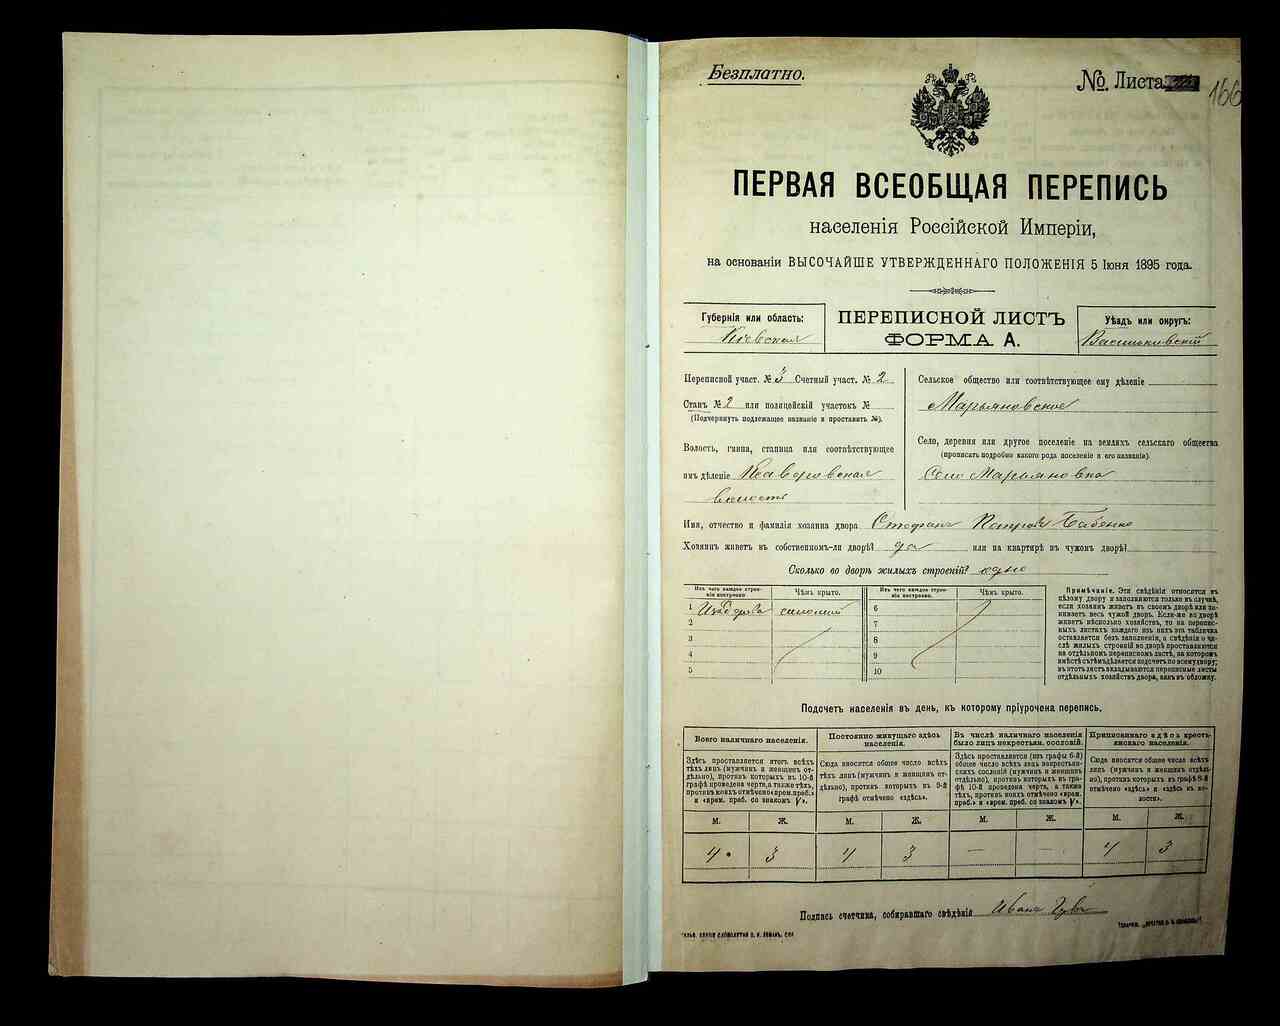 Безплатно.
№ Листа 166
ПЕРВАЯ ВСЕОБЩАЯ ПЕРЕПИСЬ
населенія Россійской Имперіи,
на основаніи ВЫСОЧАЙШЕ УТВЕРЖДЕННАГО ПОЛОЖЕНІЯ 5 Іюня 1895 года.
Губернія или область:
Кіевская
ПЕРЕПИСНОЙ ЛИСТЪ
ФОРМА А.
Уѣздъ или округъ:
Васильковскій
Переписной участ. № 3 Счетный участ. № 2
Станъ № 2 или полицейскій участокъ №
(Подчеркнуть подлежащее названіе и проставить №).
Волость, гмина, станица или соотвѣтствующее
имъ дѣленіе
волость
Сельское общество или соотвѣтствующее ему дѣленіе
Марьяновское
Село, деревня или другое поселеніе на земляхъ сельскаго общества
(прописать подробно какого рода поселеніе и его названіе).
Село Марьяновка
Имя, отчество и фамилія хозяина двора Стефанъ Бабенко
Хозяинъ живетъ въ собственномъ-ли дворѣ? да или на квартирѣ въ чужомъ дворѣ?
Сколько во дворѣ жилыхъ строеній? одно
Изъ чего каждое строе-
ніе построено
Чѣмъ крыто.
Изъ чего каждое строе-
ніе построено.
Чѣмъ крыто.
1 Изъ дерева соломой 6
2 7
3 8
4 9
5 10
Примѣчаніе. Эти свѣдѣнія относятся къ
цѣлому двору и заполняются только въ случаѣ,
если хозяинъ живетъ въ своемъ дворѣ или за-
нимаетъ весь чужой дворъ. Если-же во дворѣ
живетъ нѣсколько хозяйствъ, то на перепис-
ныхъ листахъ каждаго изъ нихъ эта табличка
оставляется безъ заполненія, а свѣдѣнія о чи-
слѣ жилыхъ строеній во дворѣ проставляются
на отдѣльномъ переписномъ листѣ, на которомъ
вмѣстѣ съ тѣмъ дѣлается подсчетъ по всему двору;
въ этотъ листъ вкладываются переписные листы
отдѣльныхъ хозяйствъ двора, какъ въ обложку.
Подсчетъ населенія въ день, къ которому пріурочена перепись.
Всего наличнаго населенія.
Здѣсь проставляется итогъ всѣхъ
тѣхъ лицъ (мужчинъ и женщинъ от-
дѣльно), противъ которыхъ въ 10-й
графѣ проведена черта, а также тѣхъ,
противъ коихъ отмѣчено «врем. преб.»
и «врем. преб. со знакомъ V».
Постоянно живущаго здѣсь
населенія.
Сюда вносится общее число всѣхъ
тѣхъ лицъ (мужчинъ и женщинъ от-
дѣльно), противъ которыхъ въ 9-й
графѣ отмѣчено «здѣсь».
Въ числѣ наличнаго населенія
было лицъ некрестьян. сословій.
Здѣсь проставляется (изъ графы 6-й)
общее число всѣхъ лицъ некрестьян-
скихъ сословій (мужчинъ и женщинъ
отдѣльно), противъ которыхъ въ гра-
фѣ 10-й проведена черта, а также
тѣхъ, противъ коихъ отмѣчено «врем.
преб.» и «врем. преб. со знакомъ V».
Приписаннаго здѣсь кресть-
янскаго населенія.
Сюда вносится общее число всѣхъ
лицъ (мужчинъ и женщинъ отдѣль-
но), противъ которыхъ въ графѣ 8-й
отмѣчено «здѣсь» и «здѣсь въ во-
лости».
М. Ж. М. Ж. М. Ж. М. Ж.
4 3 4 3 — — 4 3
Подпись счетчика, собиравшаго свѣдѣнія Иванъ